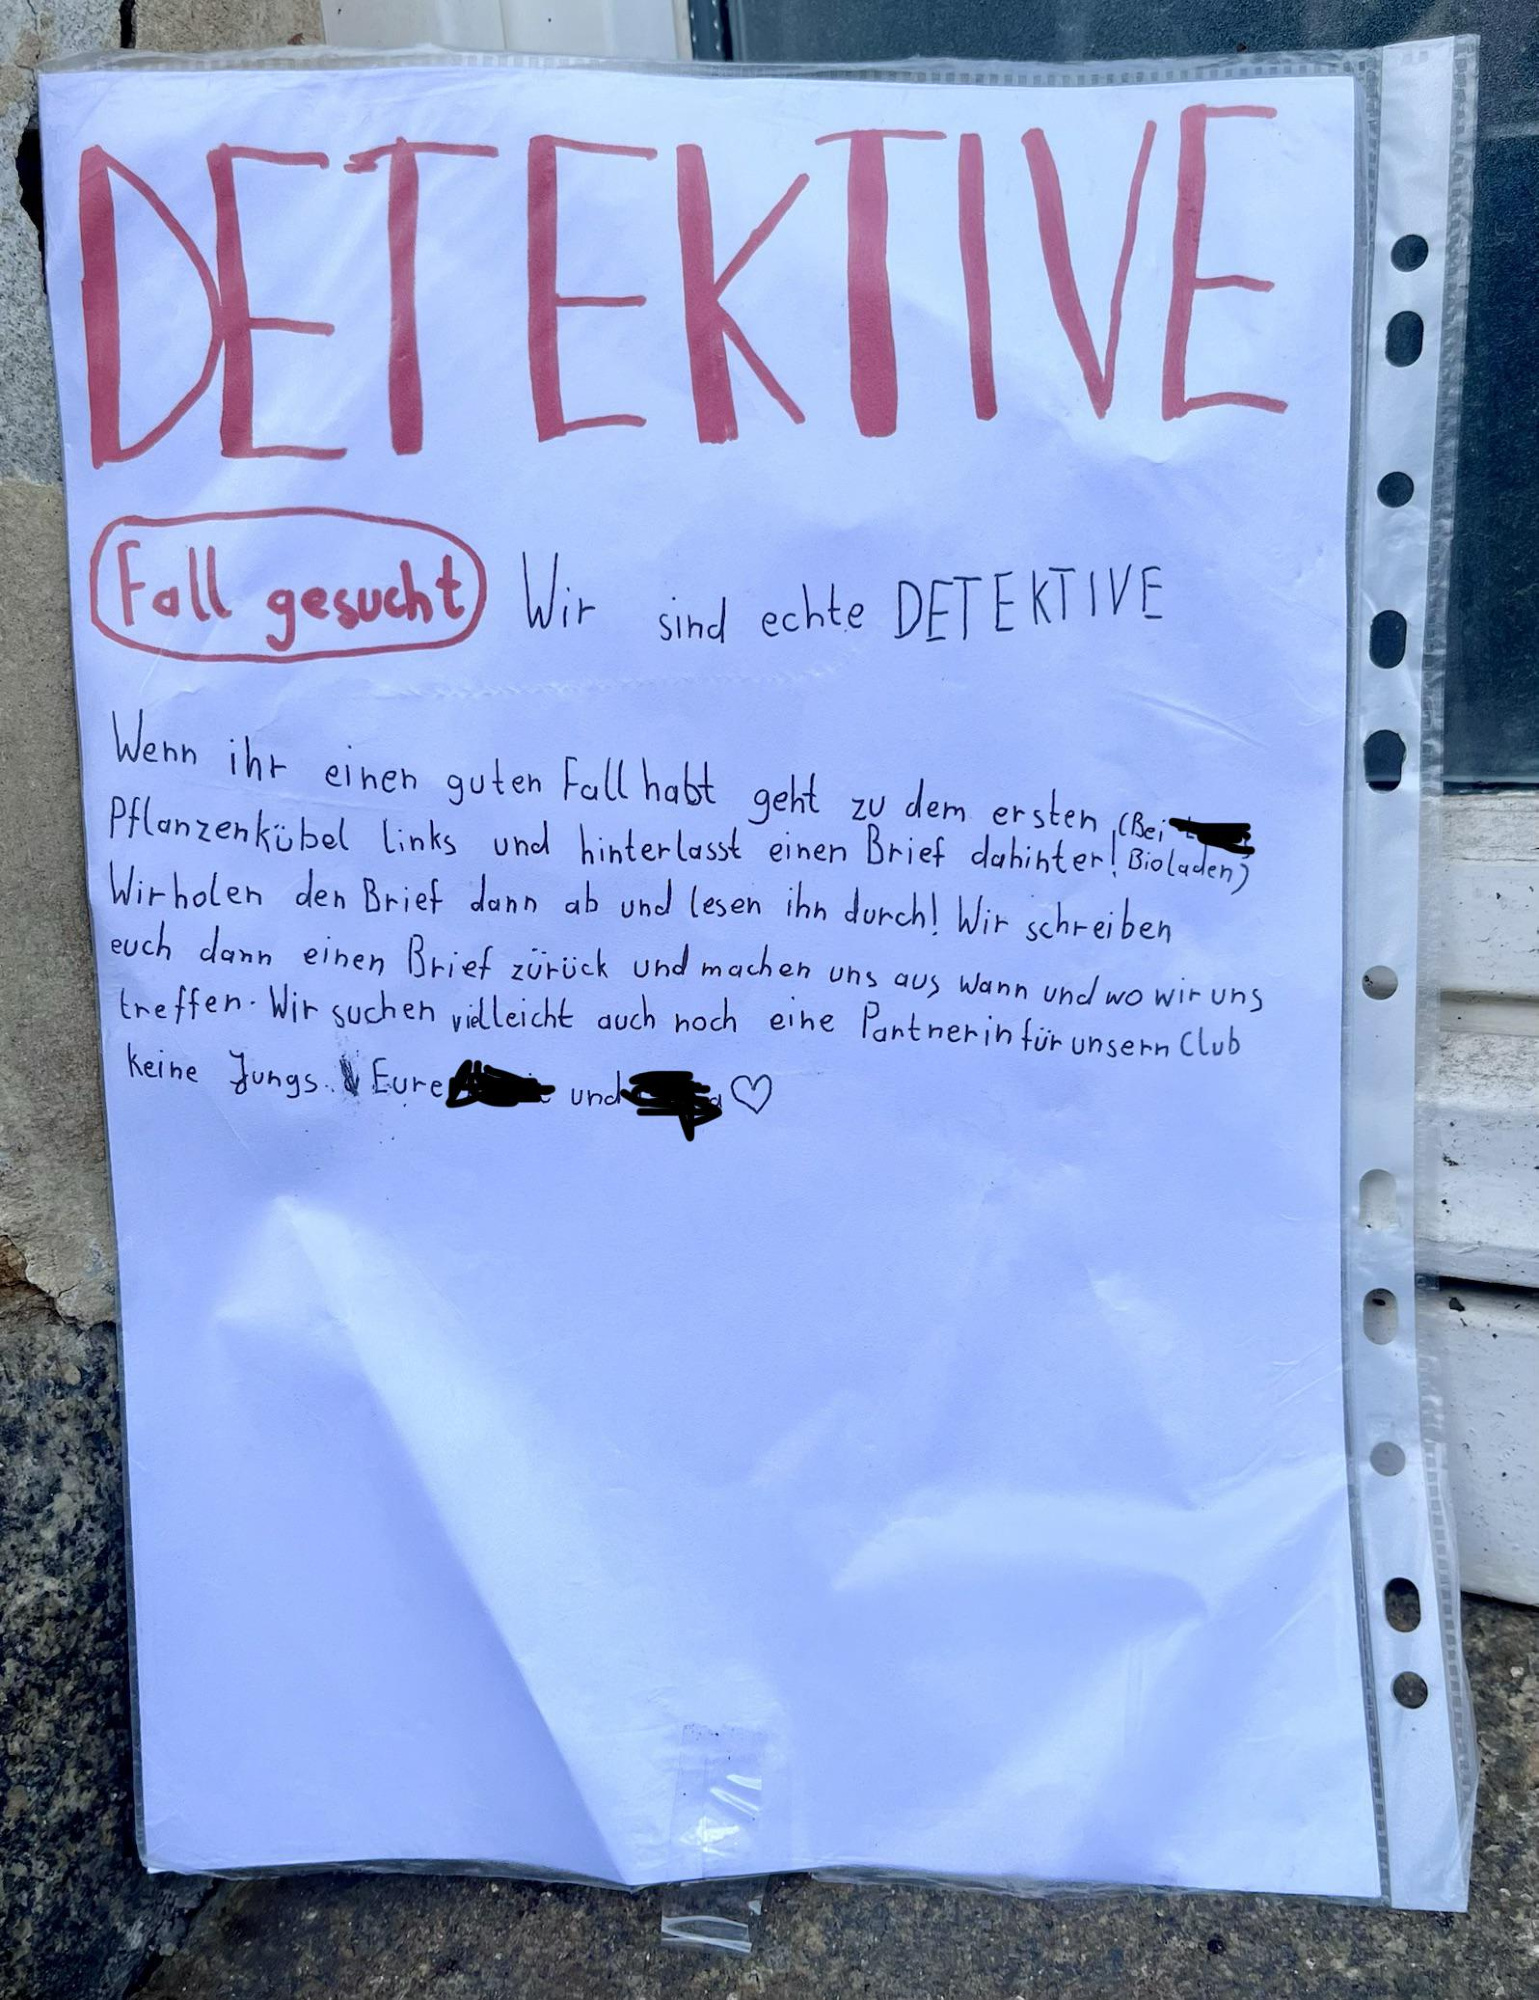 DETEKTIVE
Fall gesucht Wir sind echte DETEKTIVE
Wenn ihr einen guten Fall habt geht zu dem ersten (Bei
Pflanzenkübel links und hinterlasst einen Brief dahinter! Bioladen)
Wir holen den Brief dann ab und lesen ihn durch! Wir schreiben
euch dann einen Brief zürück und machen uns aus wann und wo wir uns
treffen. Wir suchen vielleicht auch noch eine Partnerin für unsern Club
keine Jungs. Eure und ♡